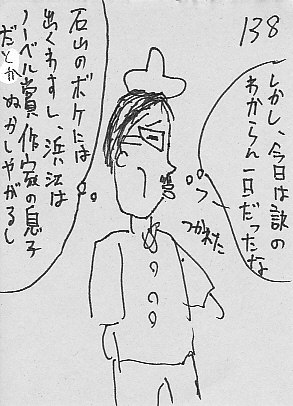 138
しかし、今日は訳の
わからん一日だったな
フー
つかれた
石山のボケには
出くわすし、浜江は
ノーベル賞作家の息子
だとかぬかしやがるし